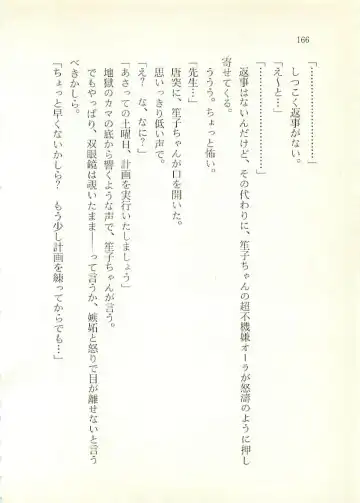 166
「………………………」
しつこく返事がない。
「え〜と…」
「………………………」
返事はないんだけど、その代わりに、笙子ちゃんの超不機嫌オーラが怒濤のように押し
寄せてくる。
ううう。ちょっと怖い。
「先生…」
唐突に、笙子ちゃんが口を開いた。
思いっきり低い声で。
「え？　な、なに？」
「あさっての土曜日、計画を実行いたしましょう」
地獄のカマの底から響くような声で、笙子ちゃんが言う。
でもやっぱり、双眼鏡は覗いたまま――って言うか、嫉妬と怒りで目が離せないと言う
べきかしら。
「ちょっと早くないかしら？　もう少し計画を練ってからでも…」